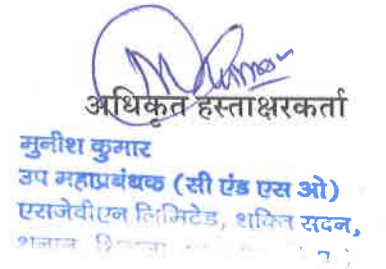 अधिकृत हस्ताक्षरकर्ता
मुनीश कुमार
उप महाप्रबंधक (सी एंड एस ओ)
एसजेवीएन लिमिटेड, शक्ति सदन,